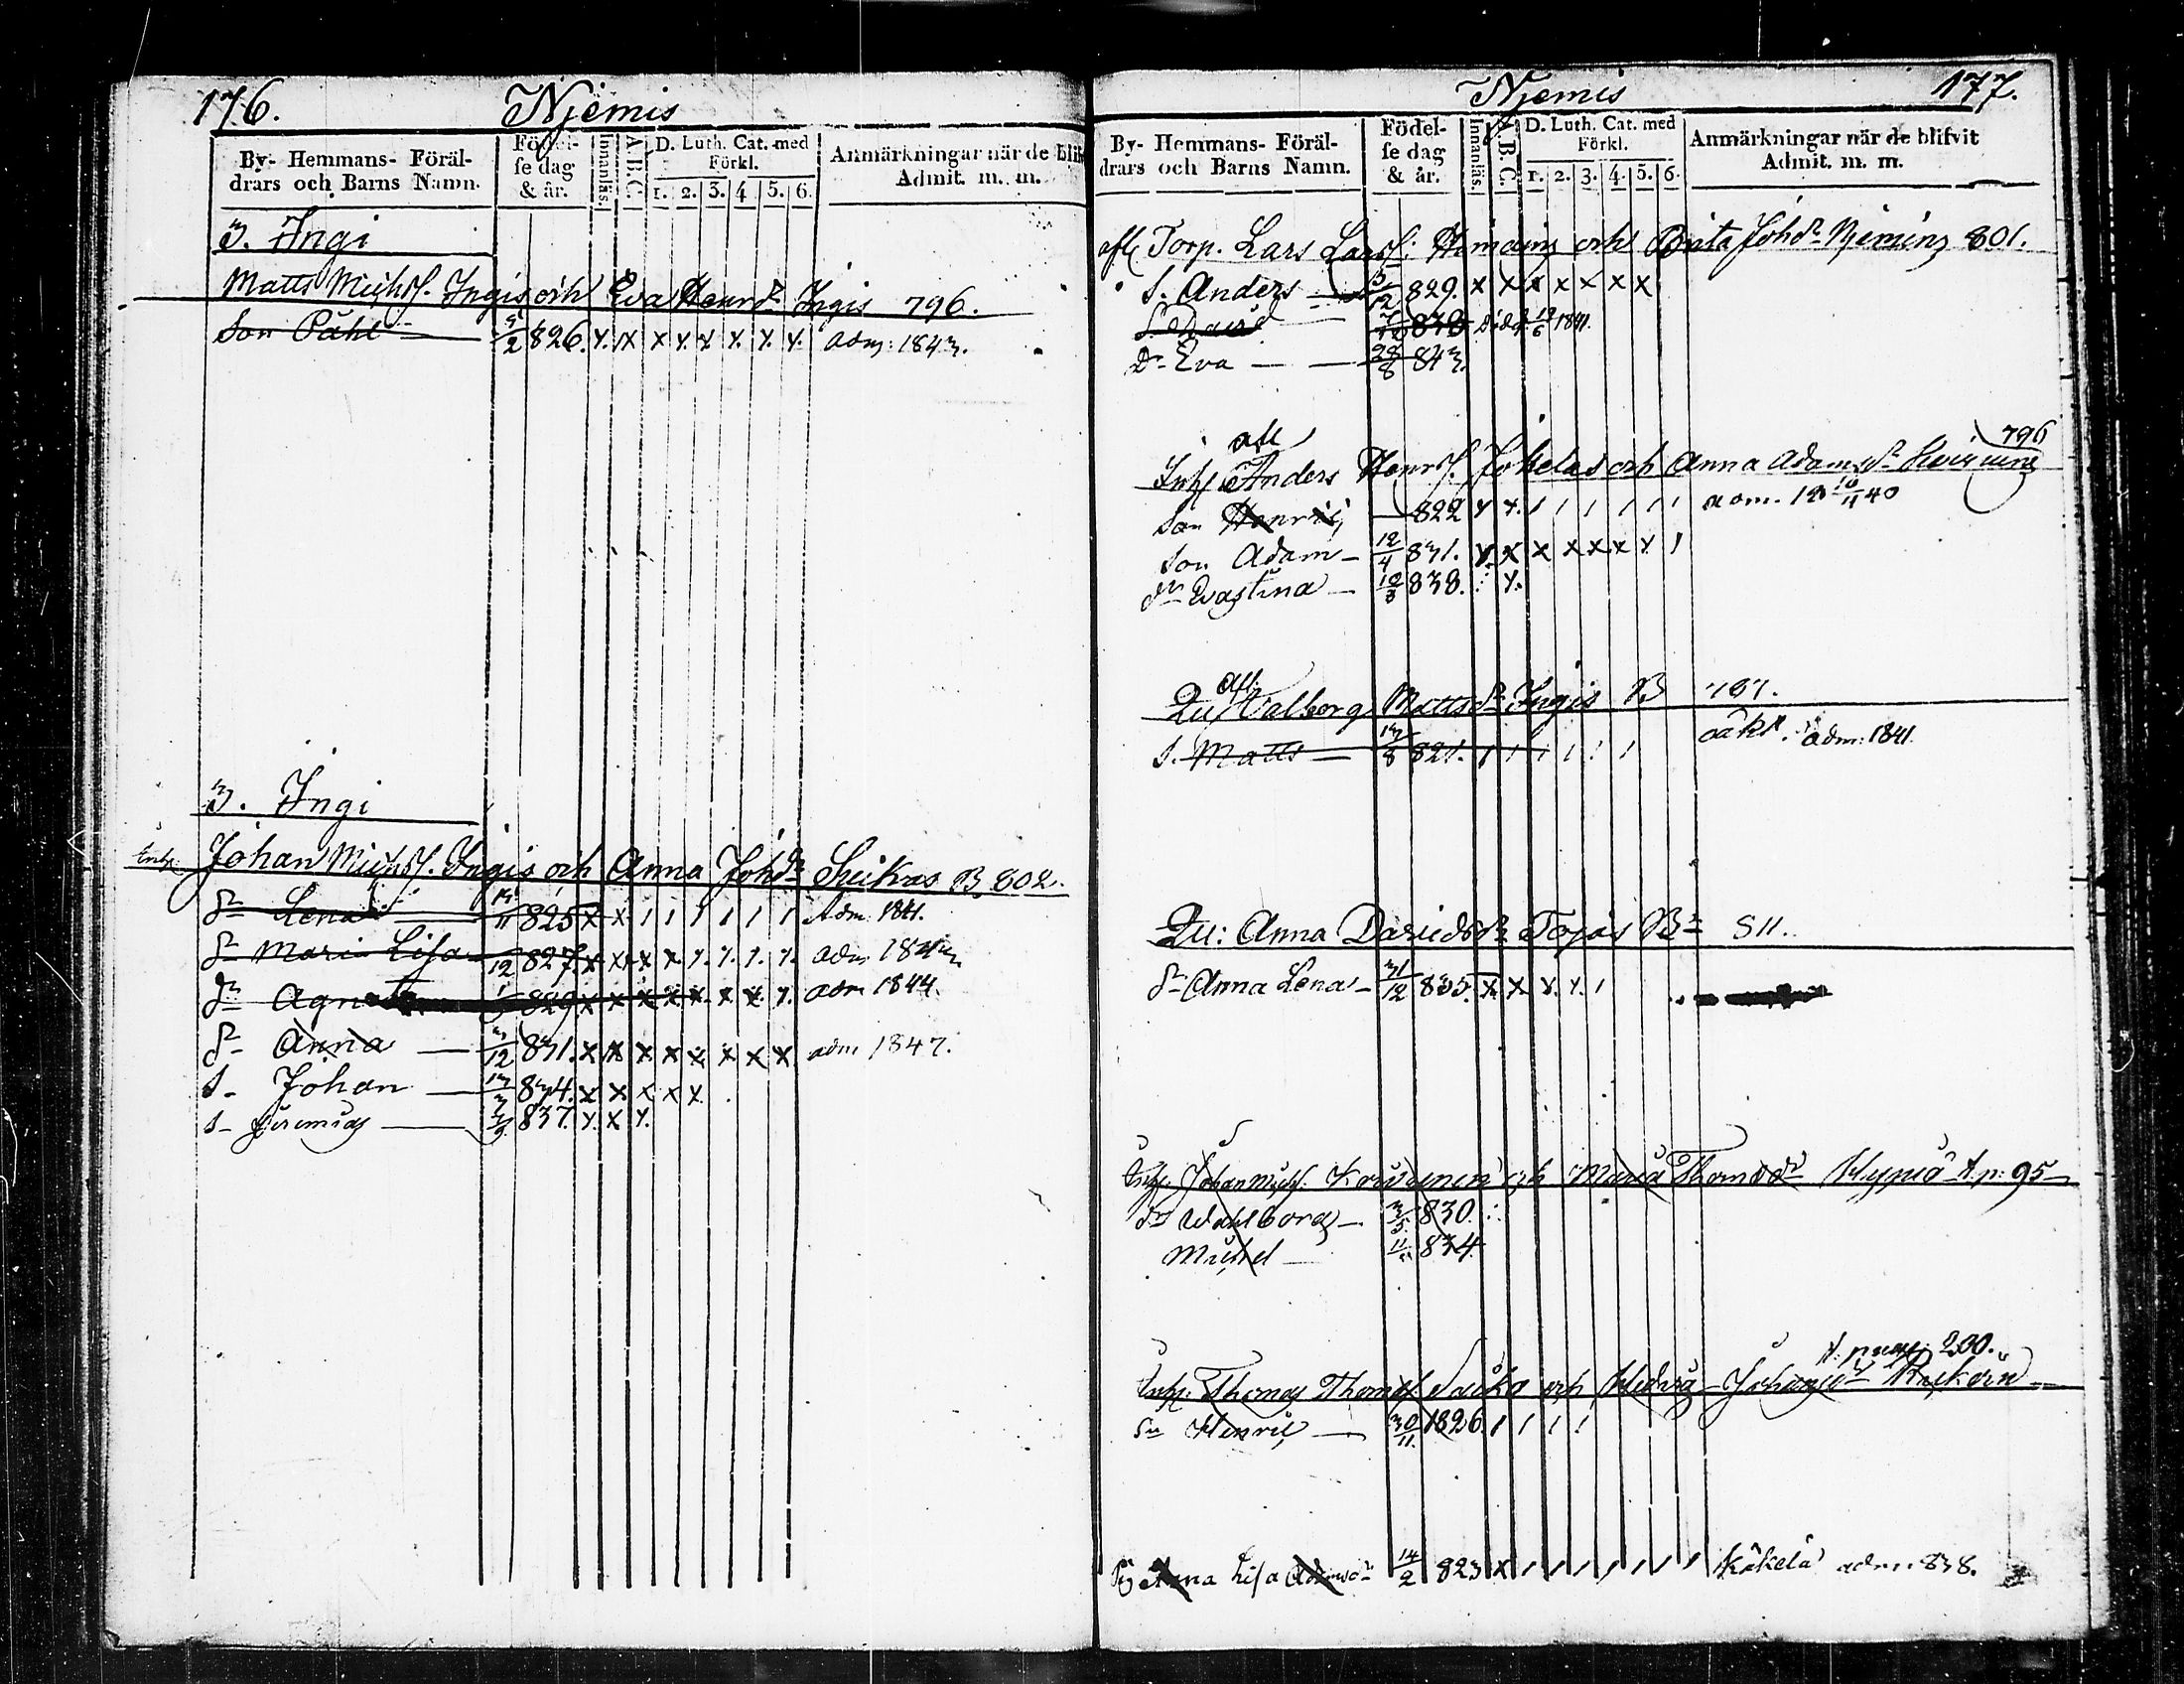 176. Njemis
By- Hemmans- Föräl-
drars och Barns Namn.
Födel-
se dag
& år.
Innanläs.
A.B.C.
D. Luth. Cat. med
Förkl.
1. 2. 3. 4 5. 6.
Anmärkningar när de blif
Admit. m. m.
3. Ingi
Matts Michss. Ingis och Eva Henrdr Ingis 796.
Son Påhl 9/2 826. x. x x x. x x. x. x. adm: 1843.
3. Ingi
Inh. Johan Michss. Ingis och Anna Johdr B 802.
dr Lena 11 825 x x 1 1 1 1 1 1 Adm. 1841.
dr Maria Lisa 12 827. x x x x. x. x. x. x. adm
dr 829 x x x x x x x x. adm 1844.
dr Anna 3/12 831. x x x x x x x x adm 1847.
s. Johan 13/3 834. x x x x x.
s. Jeremias 837. x. x x.
Njemis 177.
By- Hemmans- Föräl-
drars och Barns Namn.
Födel-
se dag
& år.
Innanläs.
A.B.C.
D. Luth. Cat. med
Förkl.
1. 2. 3. 4. 5. 6.
Anmärkningar när de blifvit
Admit. m. m.
afl Torp. Lars Larss: och Brita Johdr Nieminz 801.
s. Anders 12 829. x x x x x x x
838 död 1841.
Dr Eva 28/8 843.
afl 796
Inh Anders Henrss. Jokelas och Anna Adamsdr
Son Henric 822 x x. 1 1 1 1 1 1 adm. 40
Son Adam 12/4 831. x. x x x x x x. 1
dr Evastina 10/3 838. x.
afl.
Qu Valborg Mattsdr Ingis B 787.
s. Matts 13/8 821. 1 1 1 1 1 1 oäkt. adm: 1841.
Qu: Anna Davidsdr Tojas Br 811.
dr Anna Lena 31/12 835. x. x x. x. 1
Inh. Johan Michss. och Maria Thomsdr A. p: 95
dr Wahlborg 3/5 830.
Michel 11 834.
A. pag: 200.
Inh: Thomas Thomss. och Hedvig Johansdr
Sn Henric 30/11. 1826. 1 1 1 1
Pig Anna Lisa Adamsdr 14/2 823 x 1 1 1 1 1 1 1 Käkelä adm. 838.